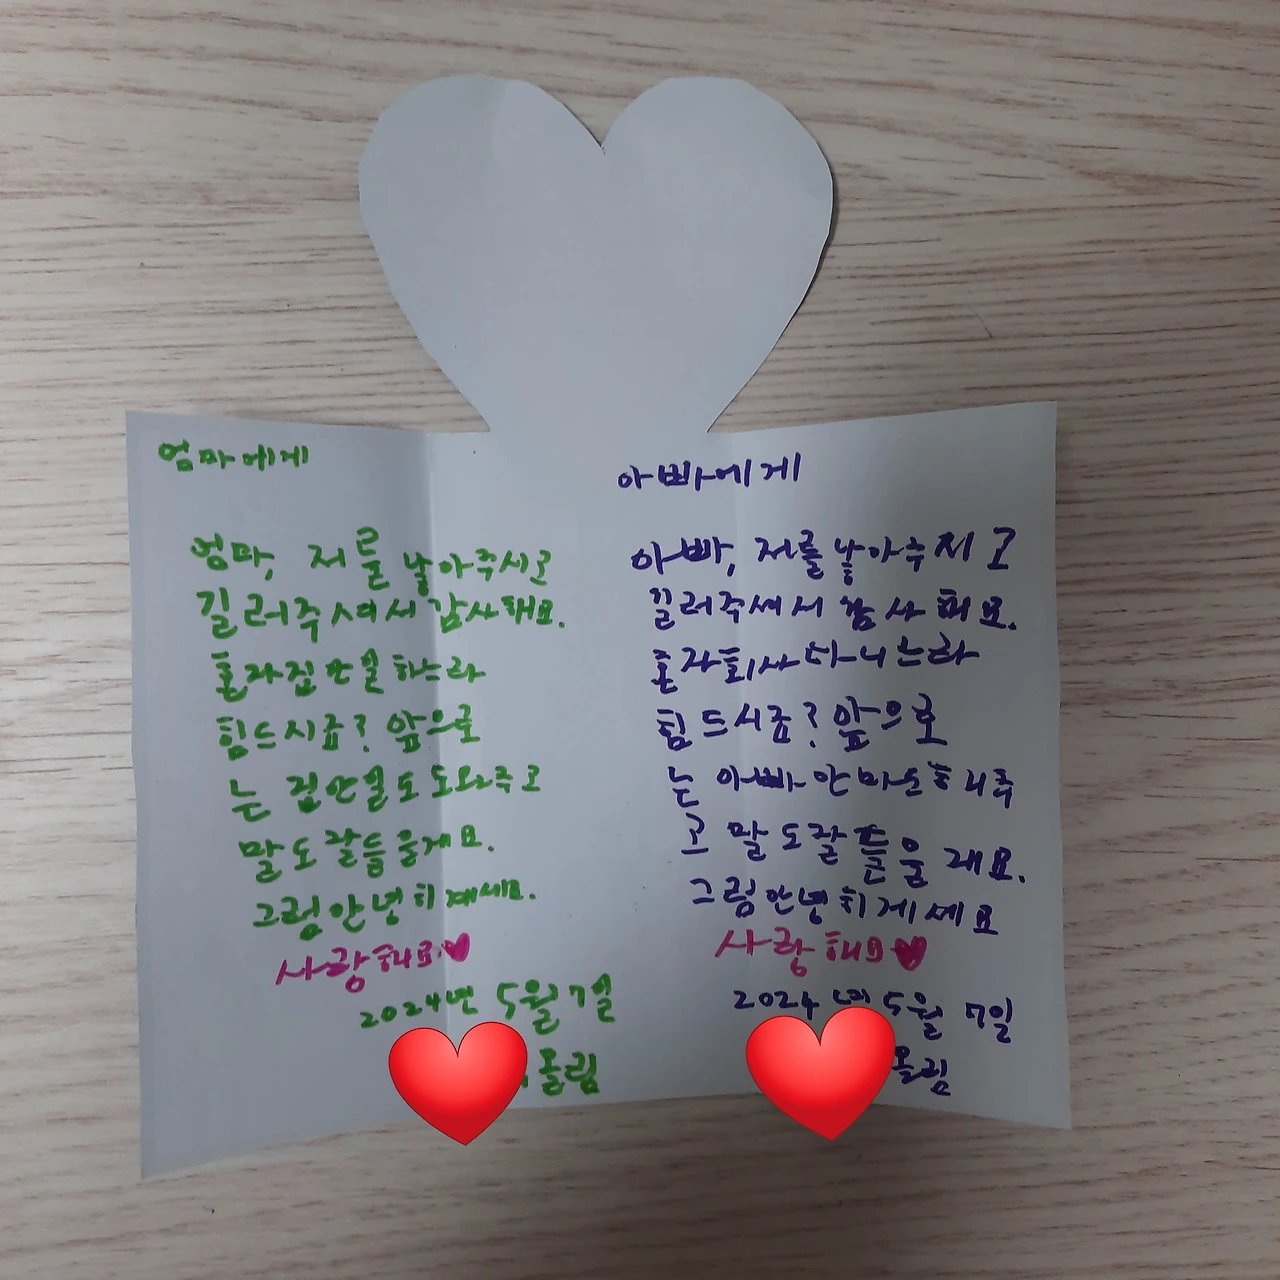 엄마에게
엄마, 저를 낳아주시고
길러주셔서 감사해요.
혼자집안일하느라
힘드시죠? 앞으로
는 집안일도 도와주고
말도잘들을게요.
그럼안녕히계세요.
사랑해요♥
2024년 5월 7일
올림
아빠에게
아빠, 저를 낳아주시고
길러주셔서 감사해요.
혼자회사다니느라
힘드시죠? 앞으로
는 아빠 안마도해주
고 말도잘들을게요.
그럼안녕히계세요
사랑해요♥
2024년 5월 7일
올림